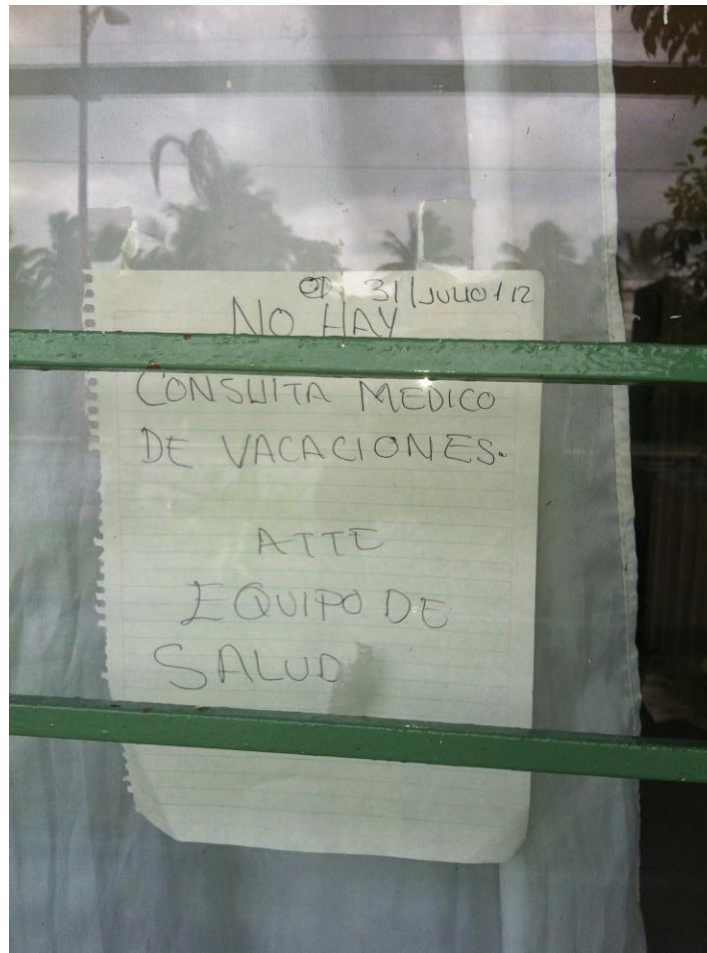 31/JULIO/12
NO HAY
CONSULTA MEDICO
DE VACACIONES.
ATTE
EQUIPO DE
SALUD